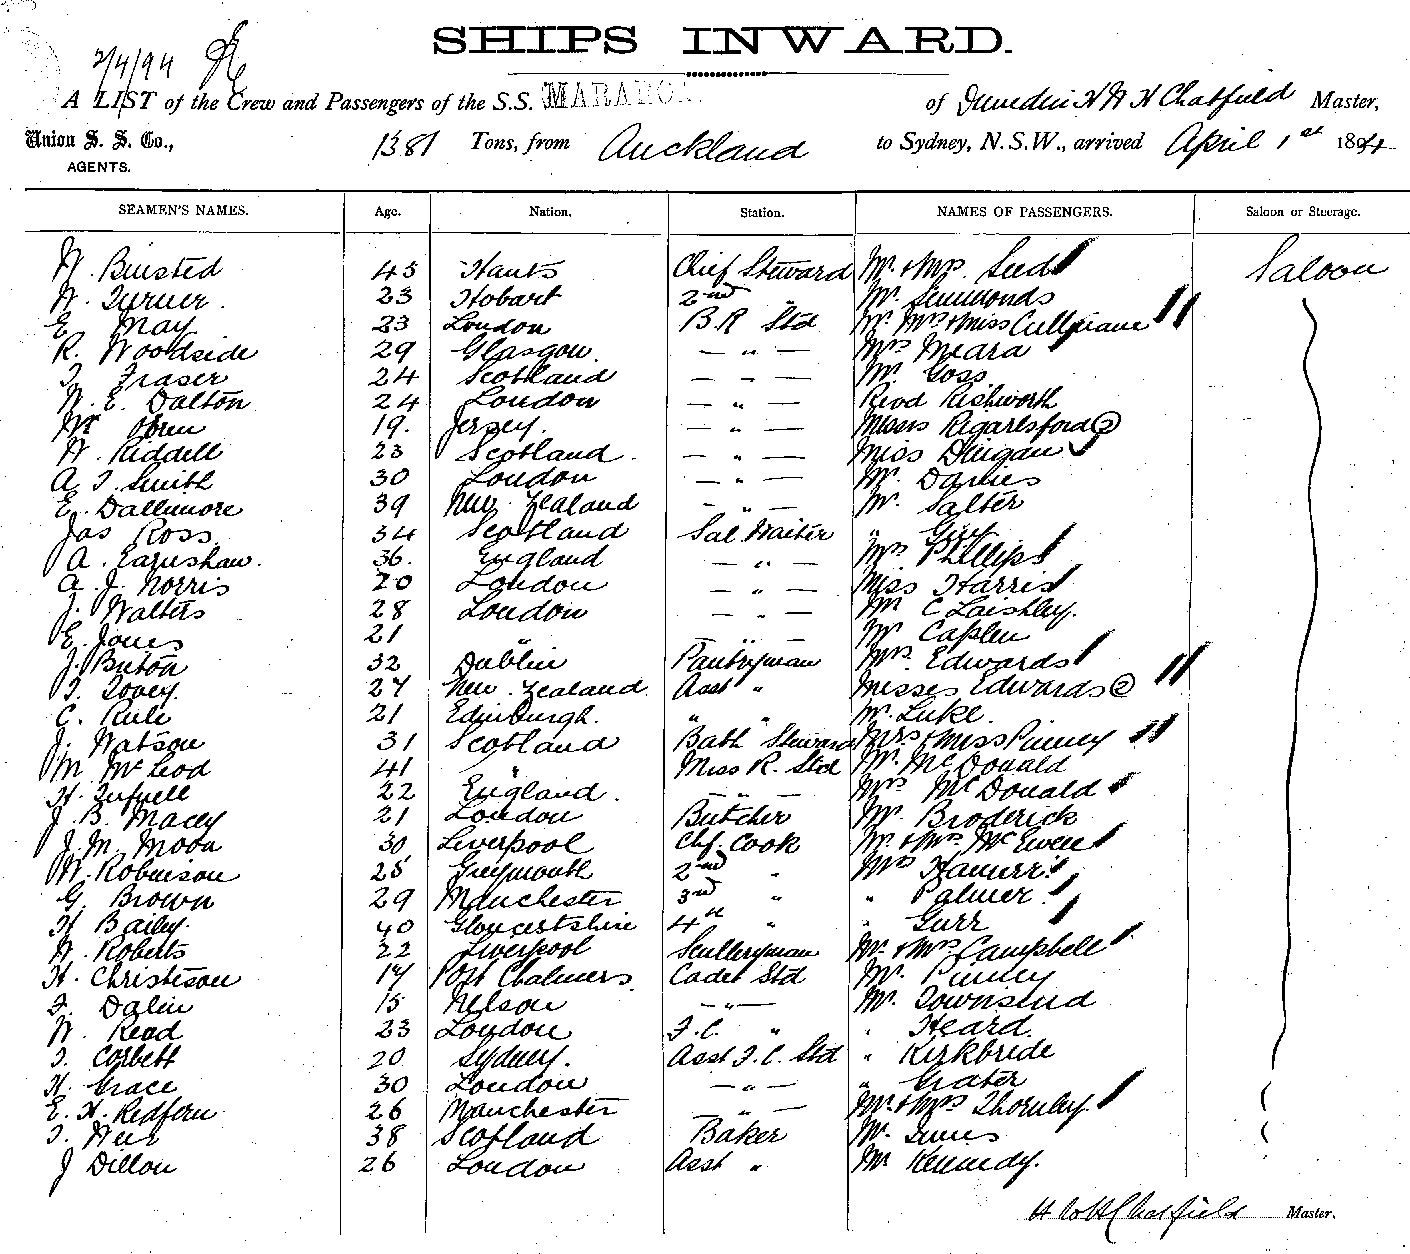 2/4/94
SHIPS INWARD.
A LIST of the Crew and Passengers of the S.S. MARAROA of Dunedin H W H Chatfield Master,
Union S. S. Co., AGENTS. 1381 Tons, from Auckland to Sydney, N.S.W., arrived April 1st 1894
SEAMEN'S NAMES. Age. Nation. Station. NAMES OF PASSENGERS. Saloon or Steerage.
W. Binsted 45 Hants Chief Steward Mr. & Mrs. Seed Saloon
W. Turner. 23 Hobart 2nd " Mr. Simmonds
E. May 23 London B.R Std Mr. Mrs & Miss
R. Woodside 29 Glasgow. — " — Mrs Meara
T. Fraser 24 Scotland — " — Mr. Goss
W. E. Dalton 24 London — " — Revd Rishworth
19. Jersey. — " — Misses ②
W. Riddell 23 Scotland. — " — Miss Dingan
A. T. Smith 30 London — " — Mr. Davies
E. Dallimore 39 New Zealand — " — Mr. Salter
Jas Ross 34 Scotland Sal Waiter " Guy
A. Earnshaw. 36. England — " — Mrs Phillips
A. J. Norris 20 London — " — Miss Harris
J. Walters 28 London — " — Mr C Laishley.
E. Jones 21 " — " — Mr. Caplen
J. Buton 32 Dublin Pantryman Mrs. Edwards
T. Tovey. 27 New Zealand Asst " Misses Edwards ②
C. Rule 21 Edinburgh. " " Mr. Luke.
J. Watson 31 Scotland Bath Steward Mrs & Miss Pinney
M McLeod 41 " Miss R. Std Mr. McDonald
H. Tufnell 22 England. — " — Mrs McDonald
J. B. Macey 21 London Butcher Mr. Broderick
J. M. Moon 30 Liverpool Chf. Cook Mr. & Mrs. McEwen
W. Robinson 25 Greymouth 2nd " Mrs
G. Brown 29 Manchester 3rd " " Palmer.
H Bailey. 40 Gloucestshire 4th " " Gurr
W. Roberts 22 Liverpool Sculleryman Mr. & Mrs Campbell
H. Christeson 17 Port Chalmers. Cadet Std Mr. Pinney
F. Dalin 15 Nelson — " — Mr. Townsend
W. Read 23 London F.C. " " Heard.
T. Corbett 20 Sydney. Asst F.C. Std " Kirkbride
H. Grace 30 London — " — " Grater
E. H. Redfern 26 Manchester — " — Mr. & Mrs Thornley.
T. Weir 38 Scotland Baker Mr. Innes
J Dillon 26 London Asst " Mr Kennedy.
H W H Chatfield Master.